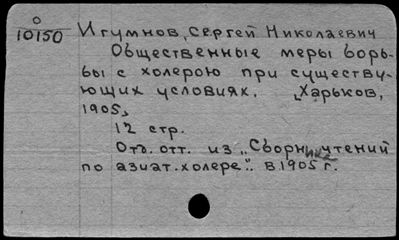 О
10150
Игумнов, Сергей Николаевич
Общественные меры борь-
бы с холерою при существу-
ющих условиях. [Харьков,
1905,]
12 стр.
Отд. отт. из „Сборника чтений
по азиат. холере". в 1905 г.